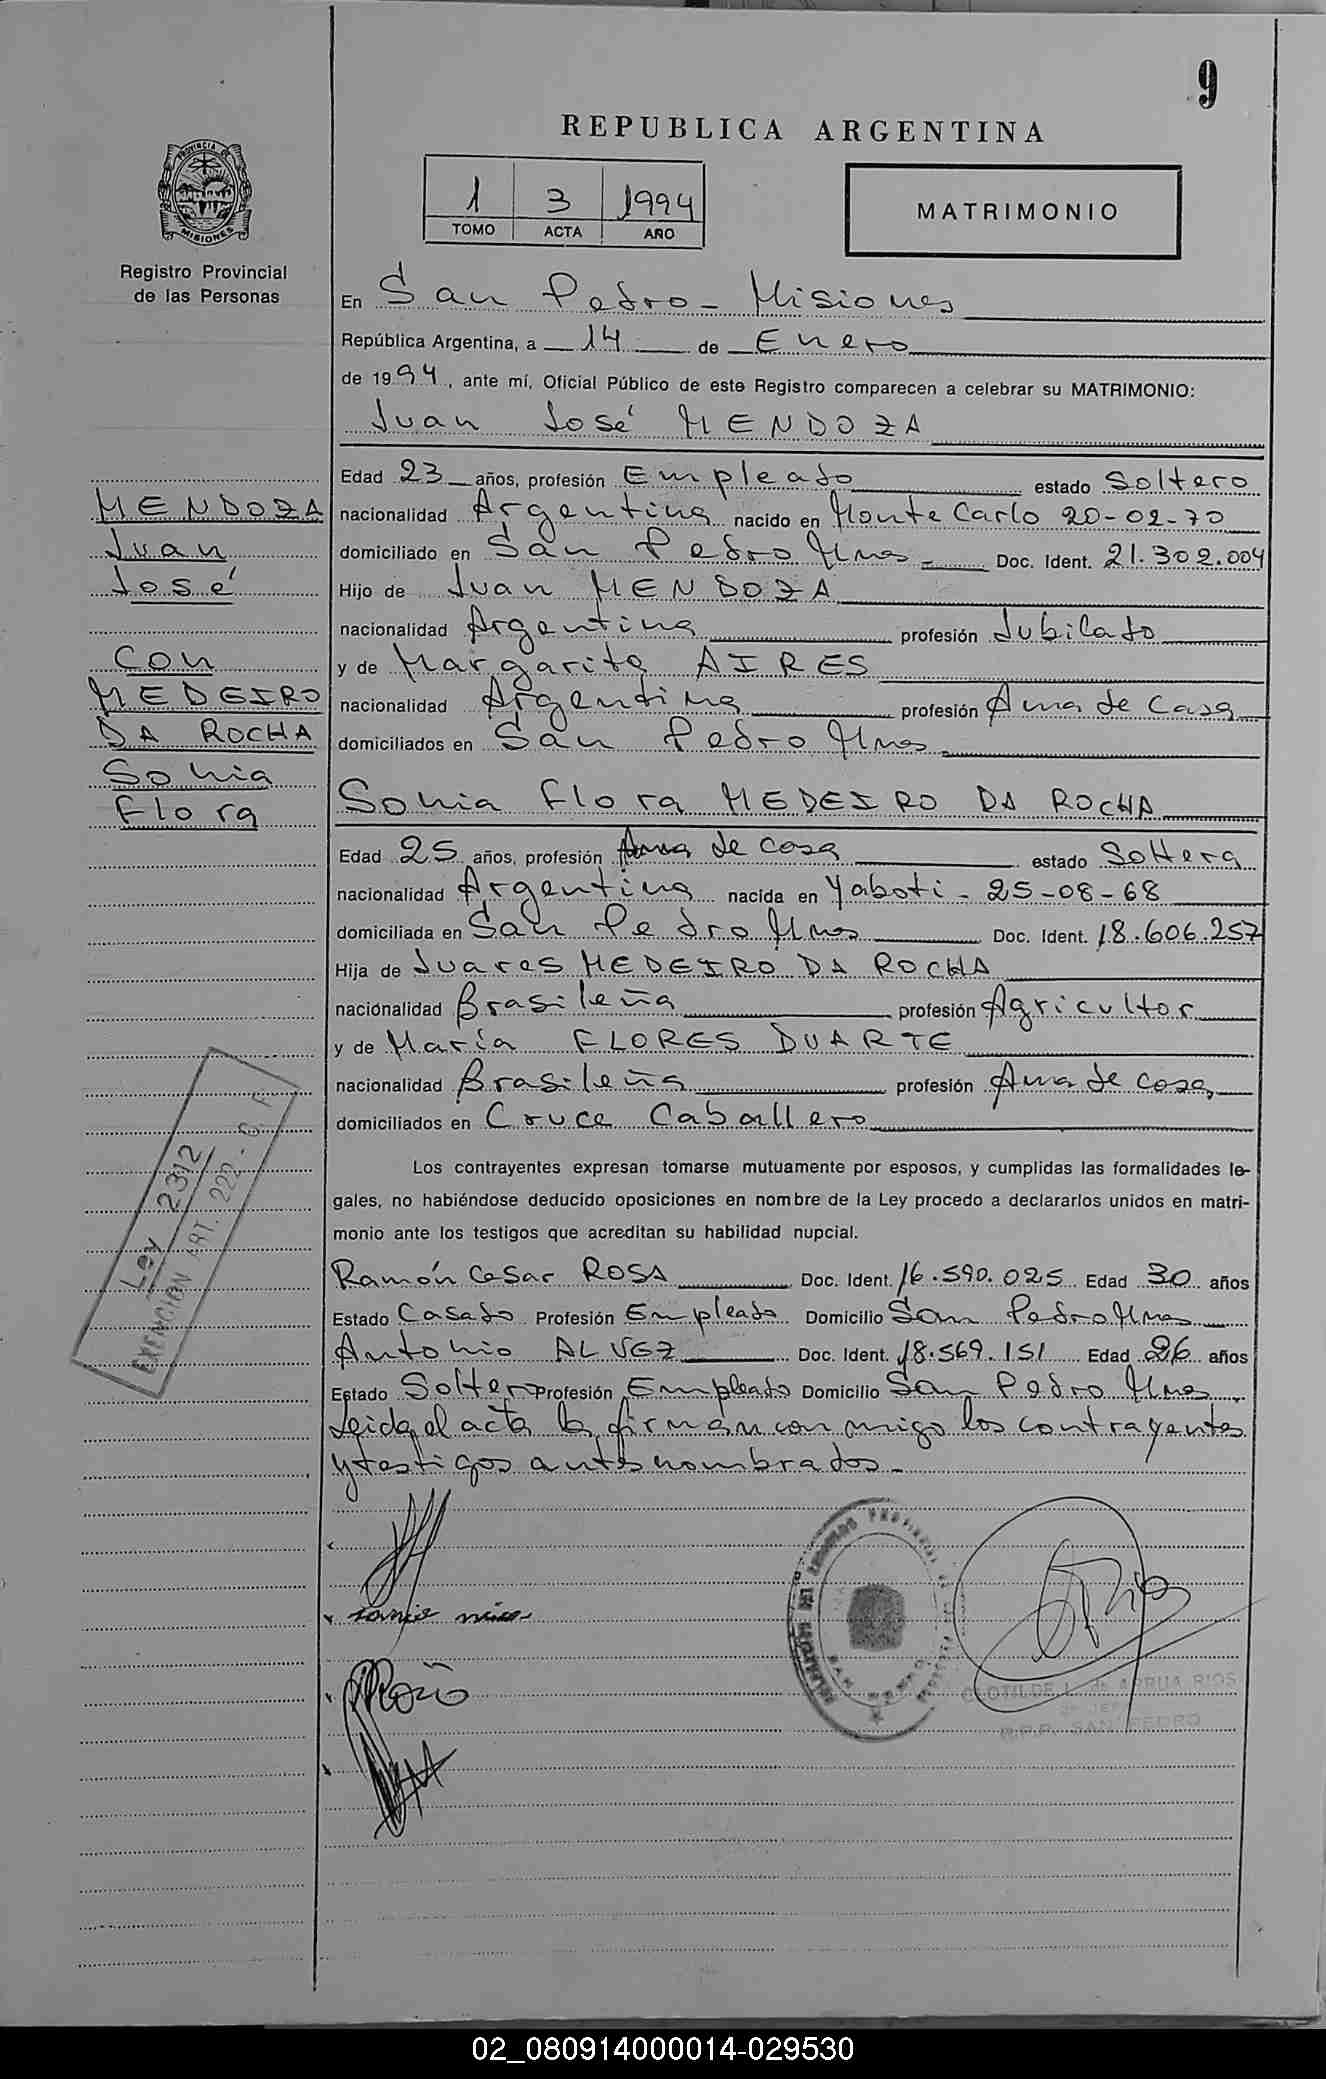 9
REPUBLICA ARGENTINA
PROVINCIA DE
MISIONES
Registro Provincial
de las Personas
1 3 1994
TOMO ACTA AÑO
MATRIMONIO
En San Pedro - Misiones
República Argentina, a 14 de Enero
de 1994, ante mí, Oficial Público de este Registro comparecen a celebrar su MATRIMONIO:
Juan José MENDOZA
MENDOZA
Juan
José
con
MEDEIRO
DA ROCHA
Sonia
Flora
Edad 23 años, profesión Empleado estado Soltero
nacionalidad Argentina nacido en Monte Carlo 20-02-70
domiciliado en San Pedro Mnes - Doc. Ident. 21.302.004
Hijo de Juan MENDOZA
nacionalidad Argentina profesión Jubilado
y de Margarita AIRES
nacionalidad Argentina profesión Ama de Casa
domiciliados en San Pedro Mnes.
Sonia Flora MEDEIRO DA ROCHA
Edad 25 años, profesión Ama de casa estado Soltera
nacionalidad Argentina nacida en Yaboti - 25-08-68
domiciliada en San Pedro Mnes Doc. Ident. 18.606.257
Hija de Juares MEDEIRO DA ROCHA
nacionalidad Brasileña profesión Agricultor
y de María FLORES DUARTE
nacionalidad Brasileña profesión Ama de casa
domiciliados en Cruce Caballero
Ley 2312
EXENCION ART. 222 -
Los contrayentes expresan tomarse mutuamente por esposos, y cumplidas las formalidades le-
gales, no habiéndose deducido oposiciones en nombre de la Ley procedo a declararlos unidos en matri-
monio ante los testigos que acreditan su habilidad nupcial.
Ramón Cesar ROSA Doc. Ident. 16.590.025 Edad 30 años
Estado Casado Profesión Empleado Domicilio San Pedro Mnes
Antonio ALVEZ Doc. Ident. 18.569.151 Edad 26 años
Estado Soltero Profesión Empleado Domicilio San Pedro Mnes
Leida el acta la firman conmigo los contrayentes
y testigos antes nombrados.-
SAN PEDRO
CLOTILDE L. de ARRUA RIOS
R.P.P. SAN PEDRO
02_080914000014-029530